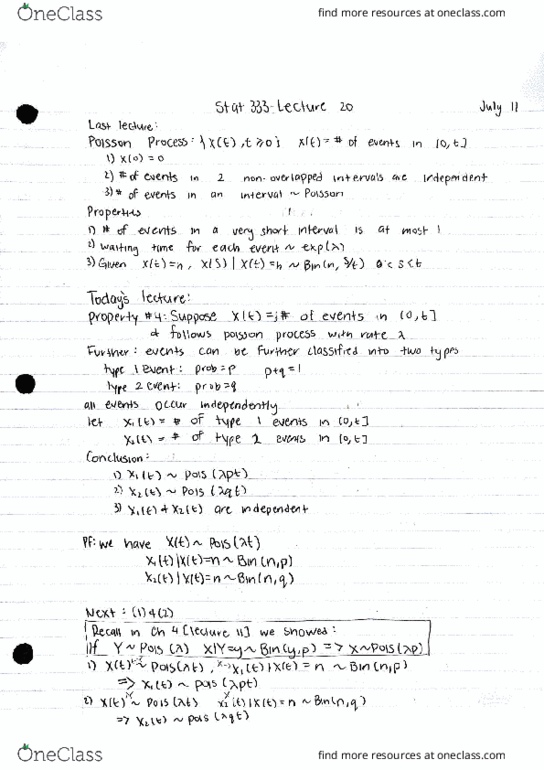 OneClass find more resources at oneclass.com
Stat 333-Lecture 20 July 11
Last lecture:
Poisson Process: {X(t), t≥0} X(t) = # of events in (0,t]
1) X(0) = 0
2) # of events in 2 non-overlapped intervals are independent
3) # of events in an interval ~ Poisson
Properties
1) # of events in a very short interval is at most 1
2) waiting time for each event ~ exp(λ)
3) Given X(t)=n, X(s) | X(t)=n ~ Bin(n, s/t) 0<s<t
Today's lecture:
Property #4: Suppose X(t) = # of events in (0,t]
& follows poisson process with rate λ
Further: events can be further classified into two types
type 1 event: prob=p p+q=1
type 2 event: prob=q
all events occur independently
let X₁(t) = # of type 1 events in (0,t]
X₂(t) = # of type 2 events in (0,t]
Conclusion:
1) X₁(t) ~ Pois(λpt)
2) X₂(t) ~ Pois(λqt)
3) X₁(t) & X₂(t) are independent
Pf: we have X(t) ~ Pois(λt)
X₁(t)|X(t)=n ~ Bin(n,p)
X₂(t)|X(t)=n ~ Bin(n,q)
Next: (1)&(2)
Recall in Ch 4 [lecture 11] we showed:
If Y ~ Pois(λ) X|Y=y ~ Bin(y,p) => X~Pois(λp)
1) X(t) ~ Pois(λt), X₁(t)|X(t) = n ~ Bin(n,p)
=> X₁(t) ~ pois(λpt)
2) X(t) ~ Pois(λt) X₂(t)|X(t)=n ~ Bin(n,q)
=> X₂(t) ~ pois(λqt)
OneClass find more resources at oneclass.com